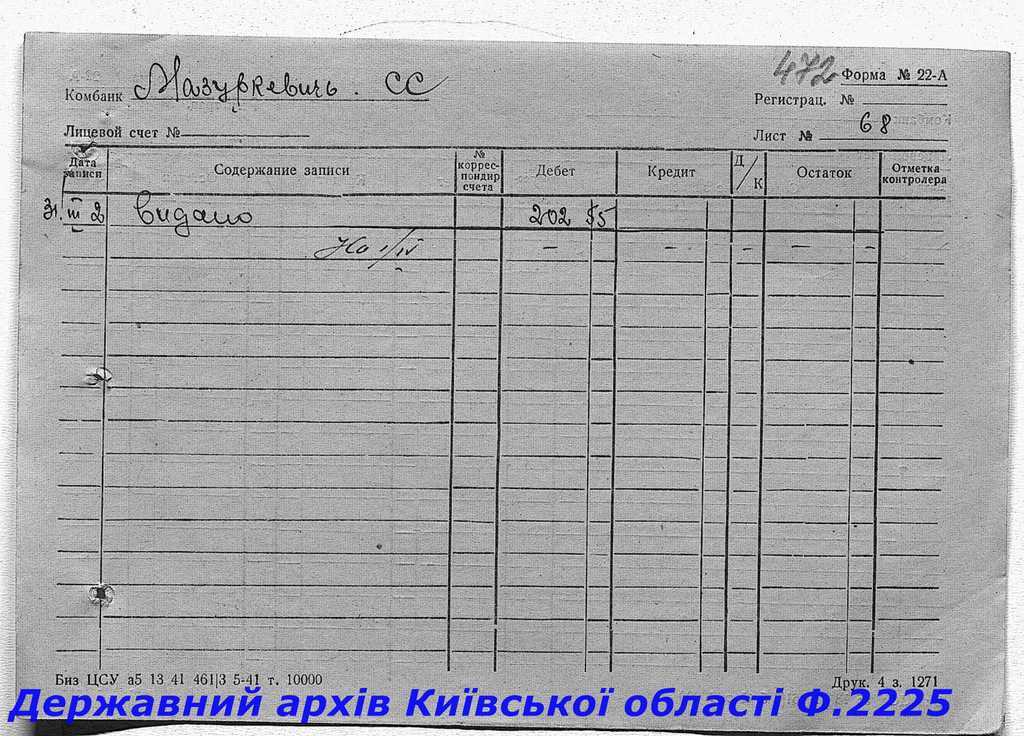 472 Форма № 22-А
Комбанк Мазуркевичь. СС
Регистрац. №
Лицевой счет №
Лист № 68
Дата записи Содержание записи № коррес-пондир счета Дебет Кредит Д/К Остаток Отметка контролера
31. III 2 видано 202 55
На 1/IV – – – – –
Биз ЦСУ а5 13 41 461|3 5-41 т. 10000 Друк. 4 з. 1271
Державний архів Київської області Ф.2225